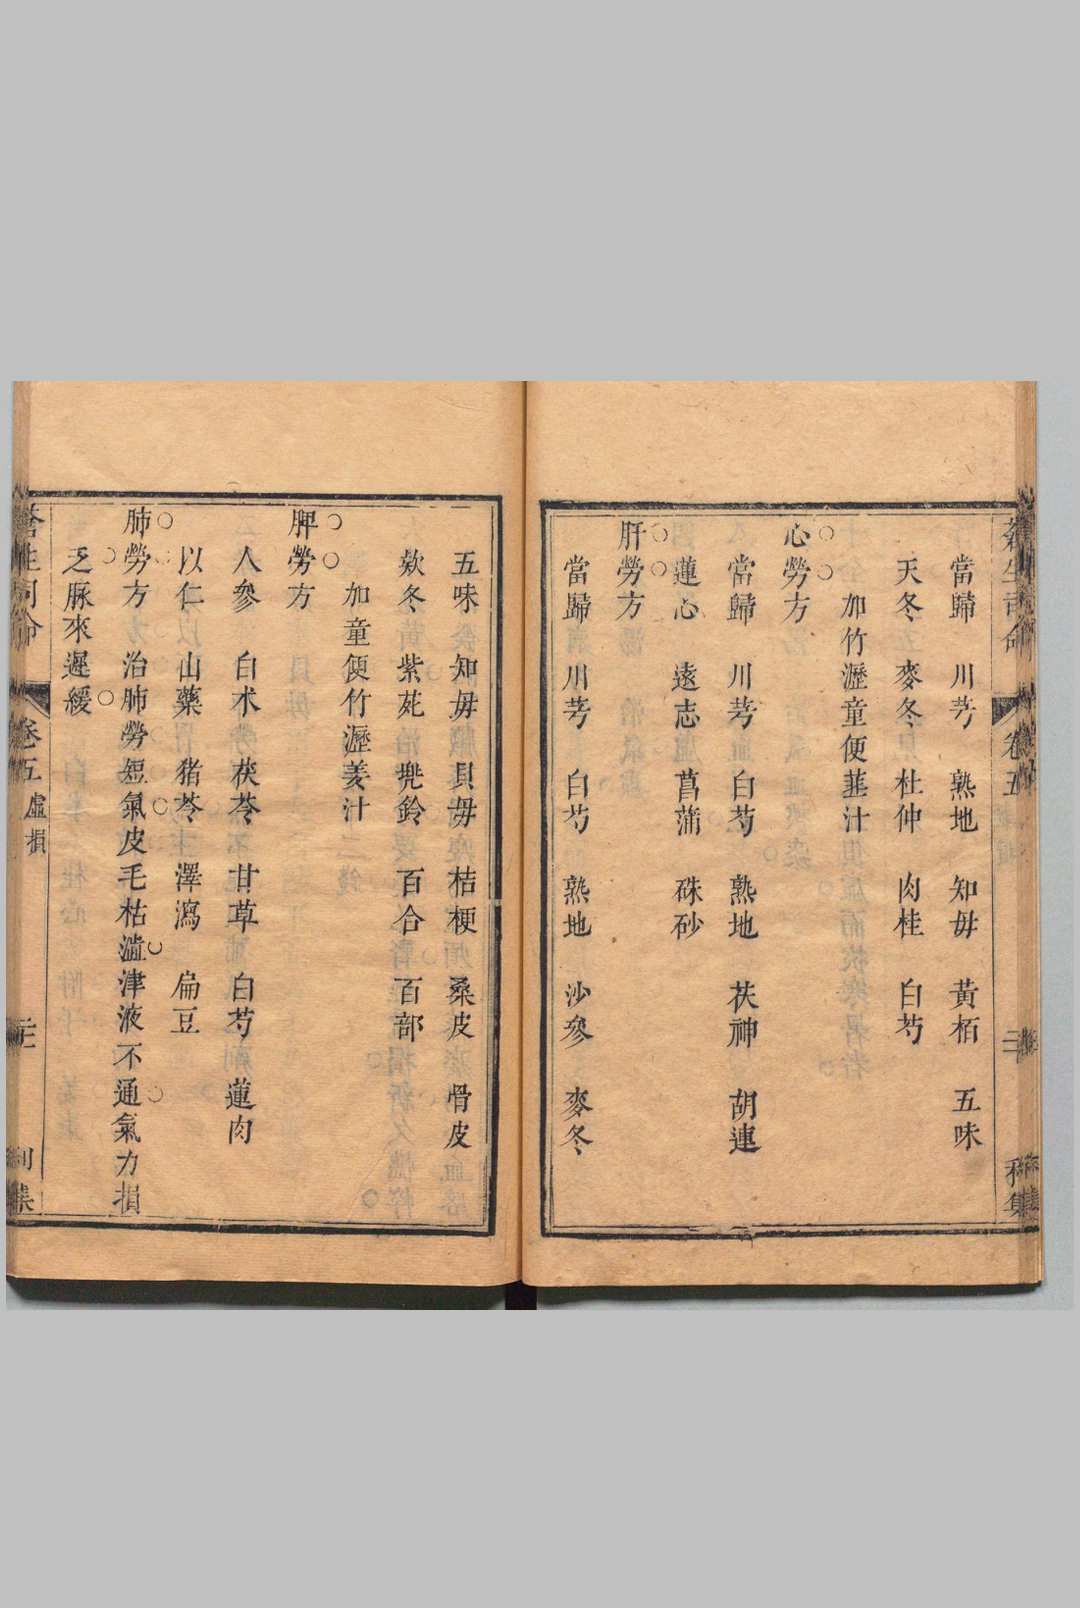 當歸　川芎　熟地　知毋　黃栢　五味
天冬　麥冬　杜仲　肉桂　白芍
加竹瀝童便韭汁
心勞方
當歸　川芎　白芍　熟地　茯神　胡連
蓮心　遠志　菖蒲　硃砂
肝勞方
當歸　川芎　白芍　熟地　沙參　麥冬
五味　知毋　貝毋　桔梗　桑皮　骨皮
欵冬　紫菀　兠鈴　百合　百部
加童便竹瀝姜汁
脾勞方
人參　白朮　茯苓　甘草　白芍　蓮肉
以仁　山藥　猪苓　澤瀉　扁豆
肺勞方　治肺勞短氣皮毛枯澁津液不通氣力損
乏脉來遲緩
蒼生司命　卷五　虛損　利集